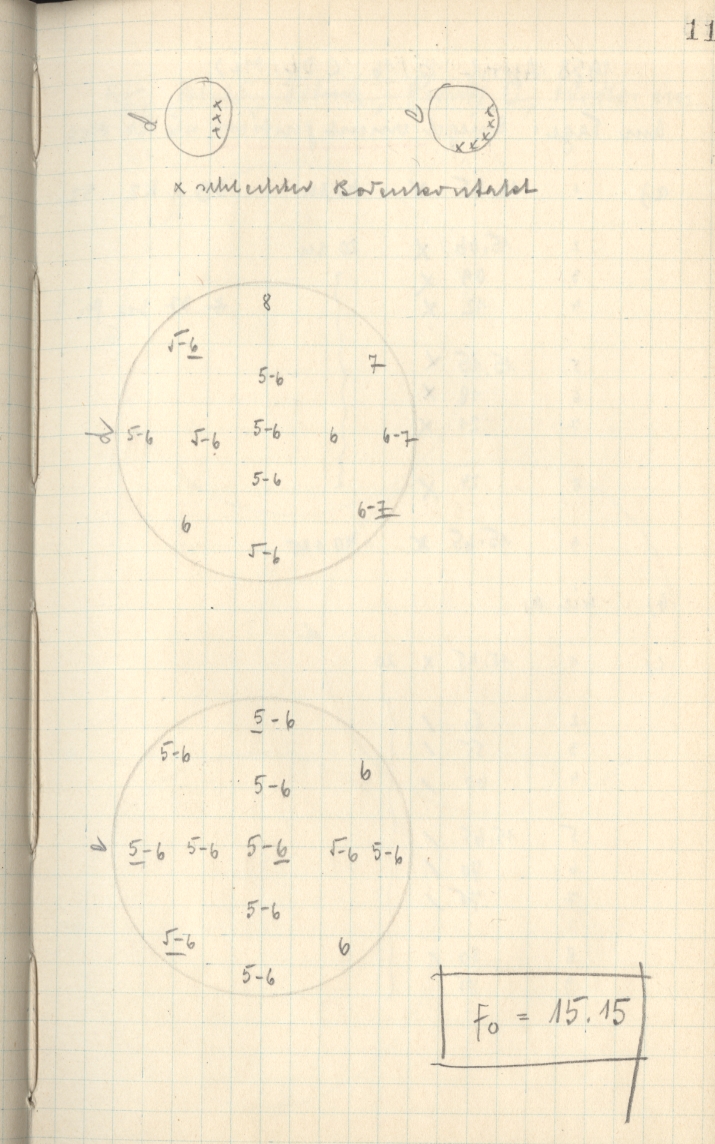 11
d
x x x
e
x x x x x
x schlechter Bodenkontakt
8
5-6
7
5-6
d 5-6 5-6 5-6 6 6-7
5-6
6-7
6
5-6
5-6
5-6
6
5-6
e 5-6 5-6 5-6 5-6 5-6
5-6
5-6
6
5-6
F0 = 15.15